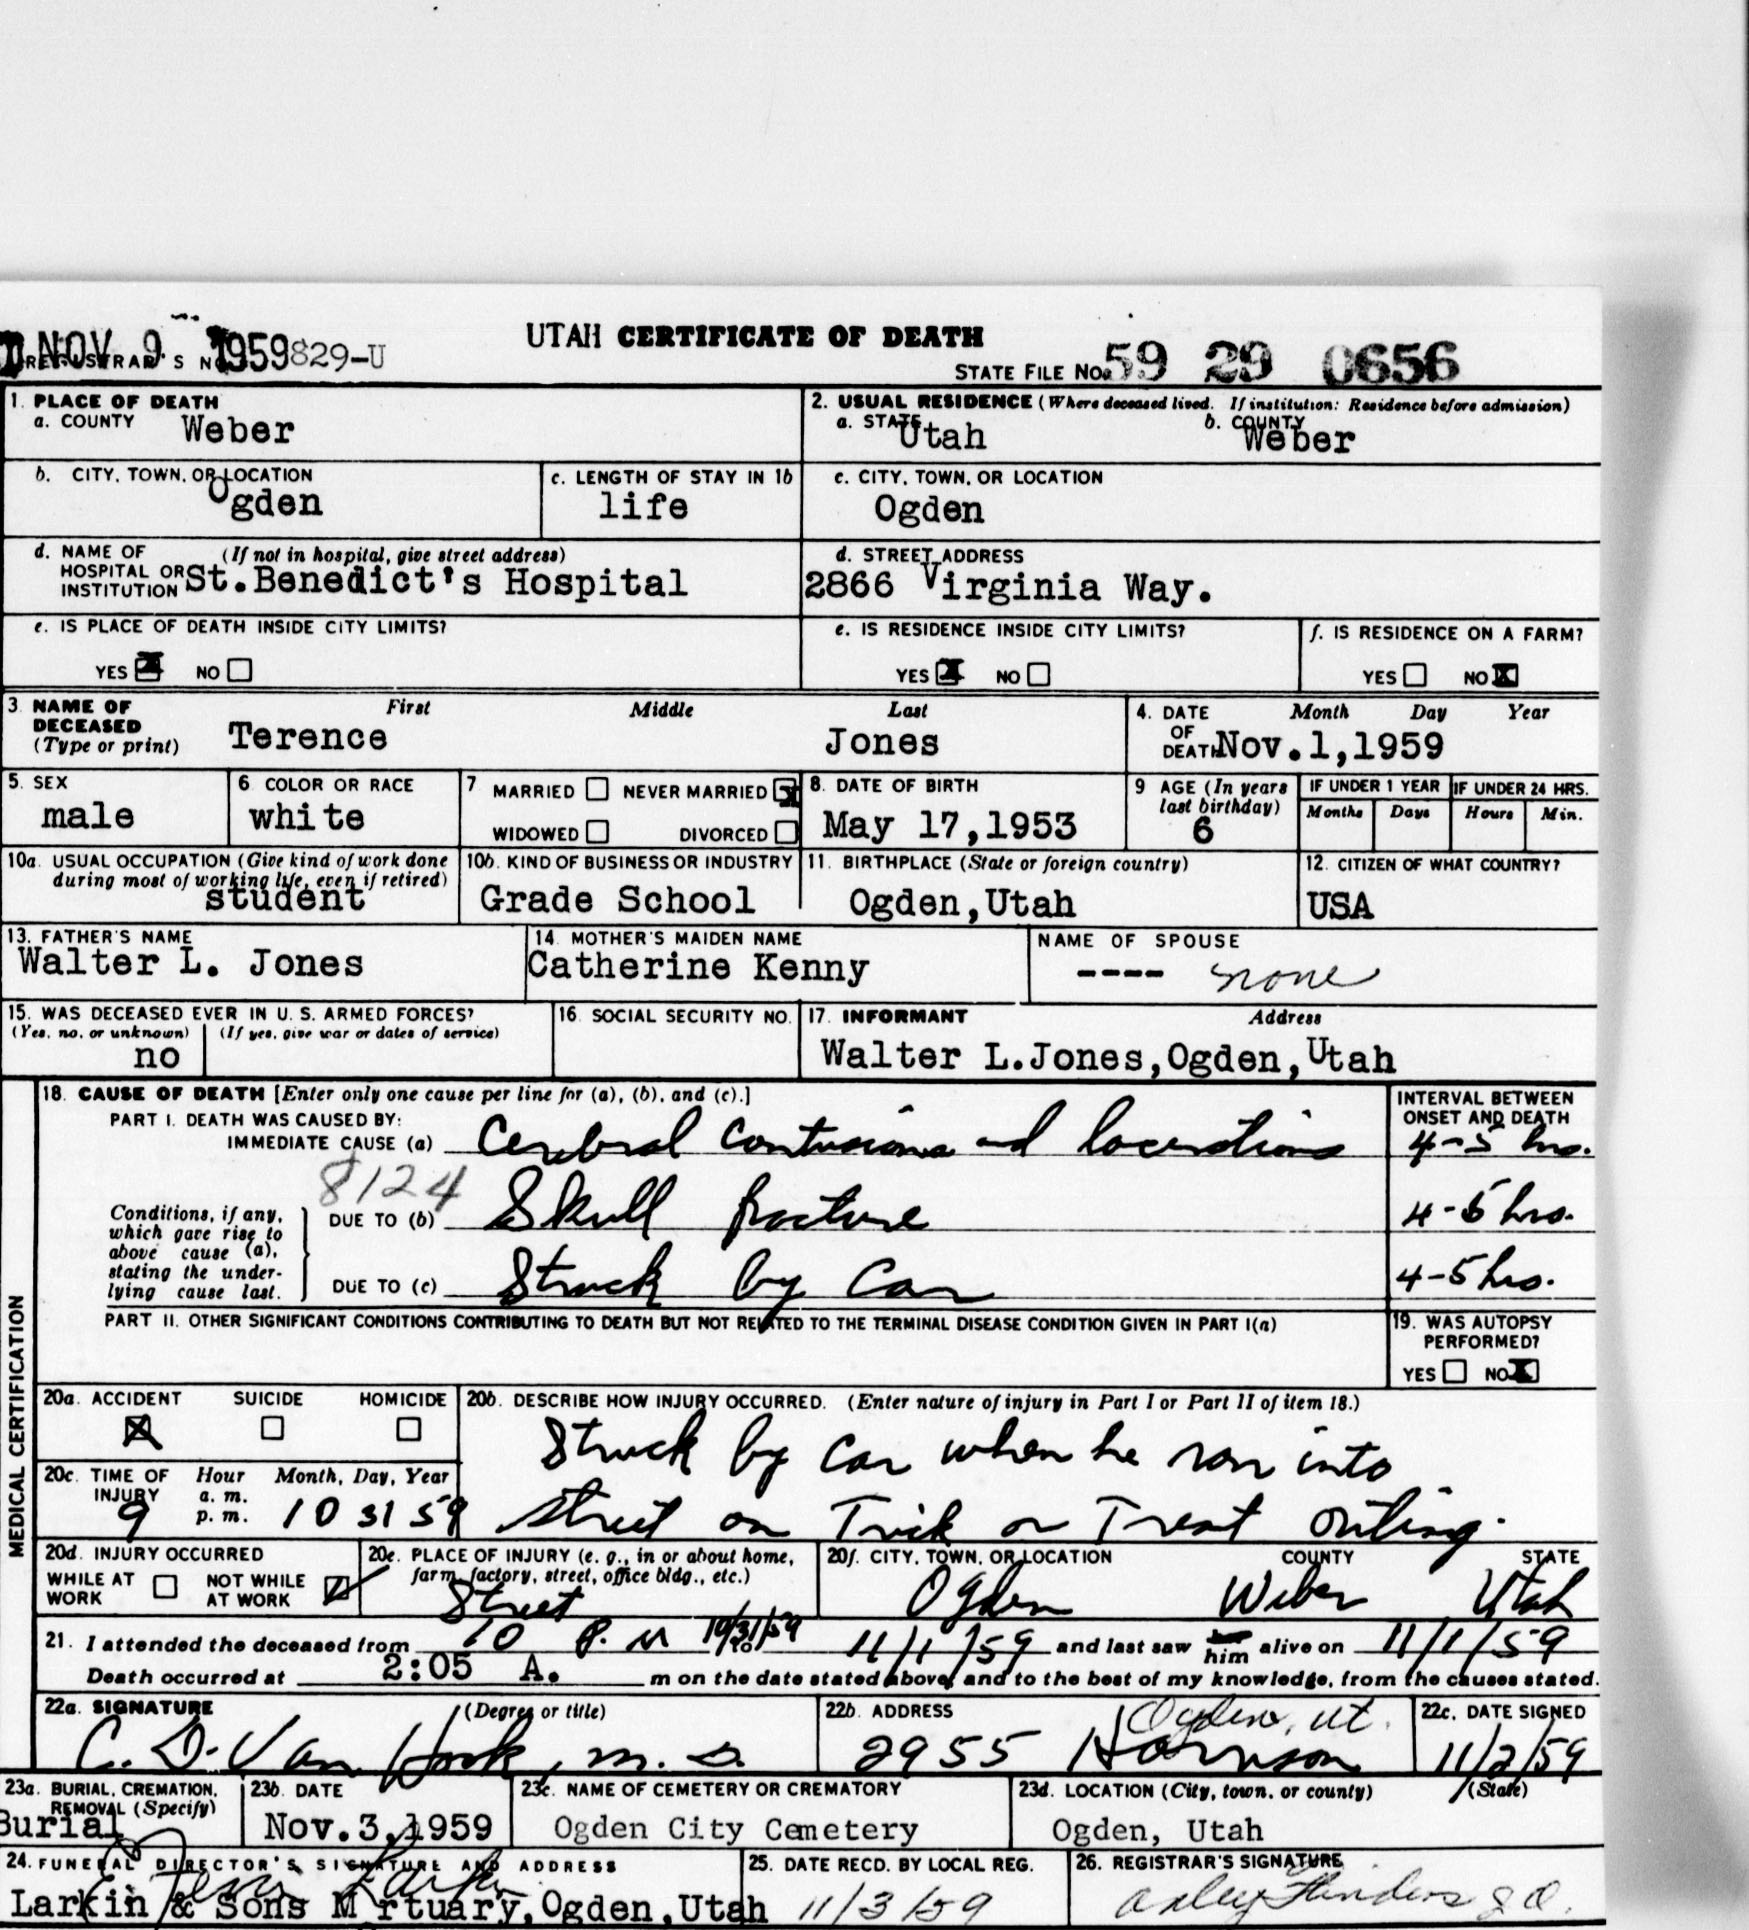 NOV 9 1959
REGISTRAR'S NO. 829-U
UTAH CERTIFICATE OF DEATH
STATE FILE NO. 59 29 0656
1. PLACE OF DEATH
a. COUNTY Weber
2. USUAL RESIDENCE (Where deceased lived. If institution: Residence before admission)
a. STATE Utah b. COUNTY Weber
b. CITY, TOWN, OR LOCATION Ogden
c. LENGTH OF STAY IN 1b life
c. CITY, TOWN, OR LOCATION Ogden
d. NAME OF HOSPITAL OR INSTITUTION (If not in hospital, give street address) St.Benedict's Hospital
d. STREET ADDRESS 2866 Virginia Way.
e. IS PLACE OF DEATH INSIDE CITY LIMITS? YES NO
e. IS RESIDENCE INSIDE CITY LIMITS? YES NO
f. IS RESIDENCE ON A FARM? YES NO
3. NAME OF DECEASED (Type or print) First Middle Last
Terence Jones
4. DATE OF DEATH Month Day Year
Nov.1,1959
5. SEX male
6 COLOR OR RACE white
7 MARRIED NEVER MARRIED
WIDOWED DIVORCED
8. DATE OF BIRTH May 17,1953
9 AGE (In years last birthday) 6
IF UNDER 1 YEAR Months Days
IF UNDER 24 HRS. Hours Min.
10a. USUAL OCCUPATION (Give kind of work done during most of working life, even if retired) student
10b. KIND OF BUSINESS OR INDUSTRY Grade School
11. BIRTHPLACE (State or foreign country) Ogden,Utah
12. CITIZEN OF WHAT COUNTRY? USA
13. FATHER'S NAME Walter L. Jones
14. MOTHER'S MAIDEN NAME Catherine Kenny
NAME OF SPOUSE ---- none
15. WAS DECEASED EVER IN U. S. ARMED FORCES?
(Yes, no, or unknown) (If yes, give war or dates of service)
no
16. SOCIAL SECURITY NO.
17. INFORMANT Address
Walter L.Jones,Ogden,Utah
MEDICAL CERTIFICATION
18. CAUSE OF DEATH [Enter only one cause per line for (a), (b), and (c).]
INTERVAL BETWEEN ONSET AND DEATH
PART I. DEATH WAS CAUSED BY:
IMMEDIATE CAUSE (a) Cerebral contusions and lacerations 4-5 hrs.
8124
Conditions, if any, which gave rise to above cause (a), stating the underlying cause last.
DUE TO (b) Skull fracture 4-5 hrs.
DUE TO (c) Struck by Car 4-5 hrs.
PART II. OTHER SIGNIFICANT CONDITIONS CONTRIBUTING TO DEATH BUT NOT RELATED TO THE TERMINAL DISEASE CONDITION GIVEN IN PART I(a)
19. WAS AUTOPSY PERFORMED?
YES NO
20a. ACCIDENT SUICIDE HOMICIDE
20b. DESCRIBE HOW INJURY OCCURRED. (Enter nature of injury in Part I or Part II of item 18.)
Struck by Car when he ran into
Street on Trick or Treat outing.
20c. TIME OF INJURY Hour Month, Day, Year
a. m.
9 p. m. 10 31 59
20d. INJURY OCCURRED
WHILE AT WORK NOT WHILE AT WORK
20e. PLACE OF INJURY (e. g., in or about home, farm, factory, street, office bldg., etc.)
Street
20f. CITY, TOWN, OR LOCATION COUNTY STATE
Ogden Weber Utah
21. I attended the deceased from 10 P. M 10/31/59 to 11/1/59 and last saw him alive on 11/1/59
Death occurred at 2:05 A. m on the date stated above, and to the best of my knowledge, from the causes stated.
22a. SIGNATURE (Degree or title)
C. D. Van Hook, M. D.
22b. ADDRESS
2955 Harrison Ogden, Ut.
22c. DATE SIGNED
11/2/59
23a. BURIAL, CREMATION, REMOVAL (Specify)
Burial
23b. DATE
Nov.3,1959
23c. NAME OF CEMETERY OR CREMATORY
Ogden City Cemetery
23d. LOCATION (City, town, or county) (State)
Ogden, Utah
24. FUNERAL DIRECTOR'S SIGNATURE AND ADDRESS
Larkin
Larkin & Sons M rtuary,Ogden,Utah
25. DATE RECD. BY LOCAL REG.
11/3/59
26. REGISTRAR'S SIGNATURE